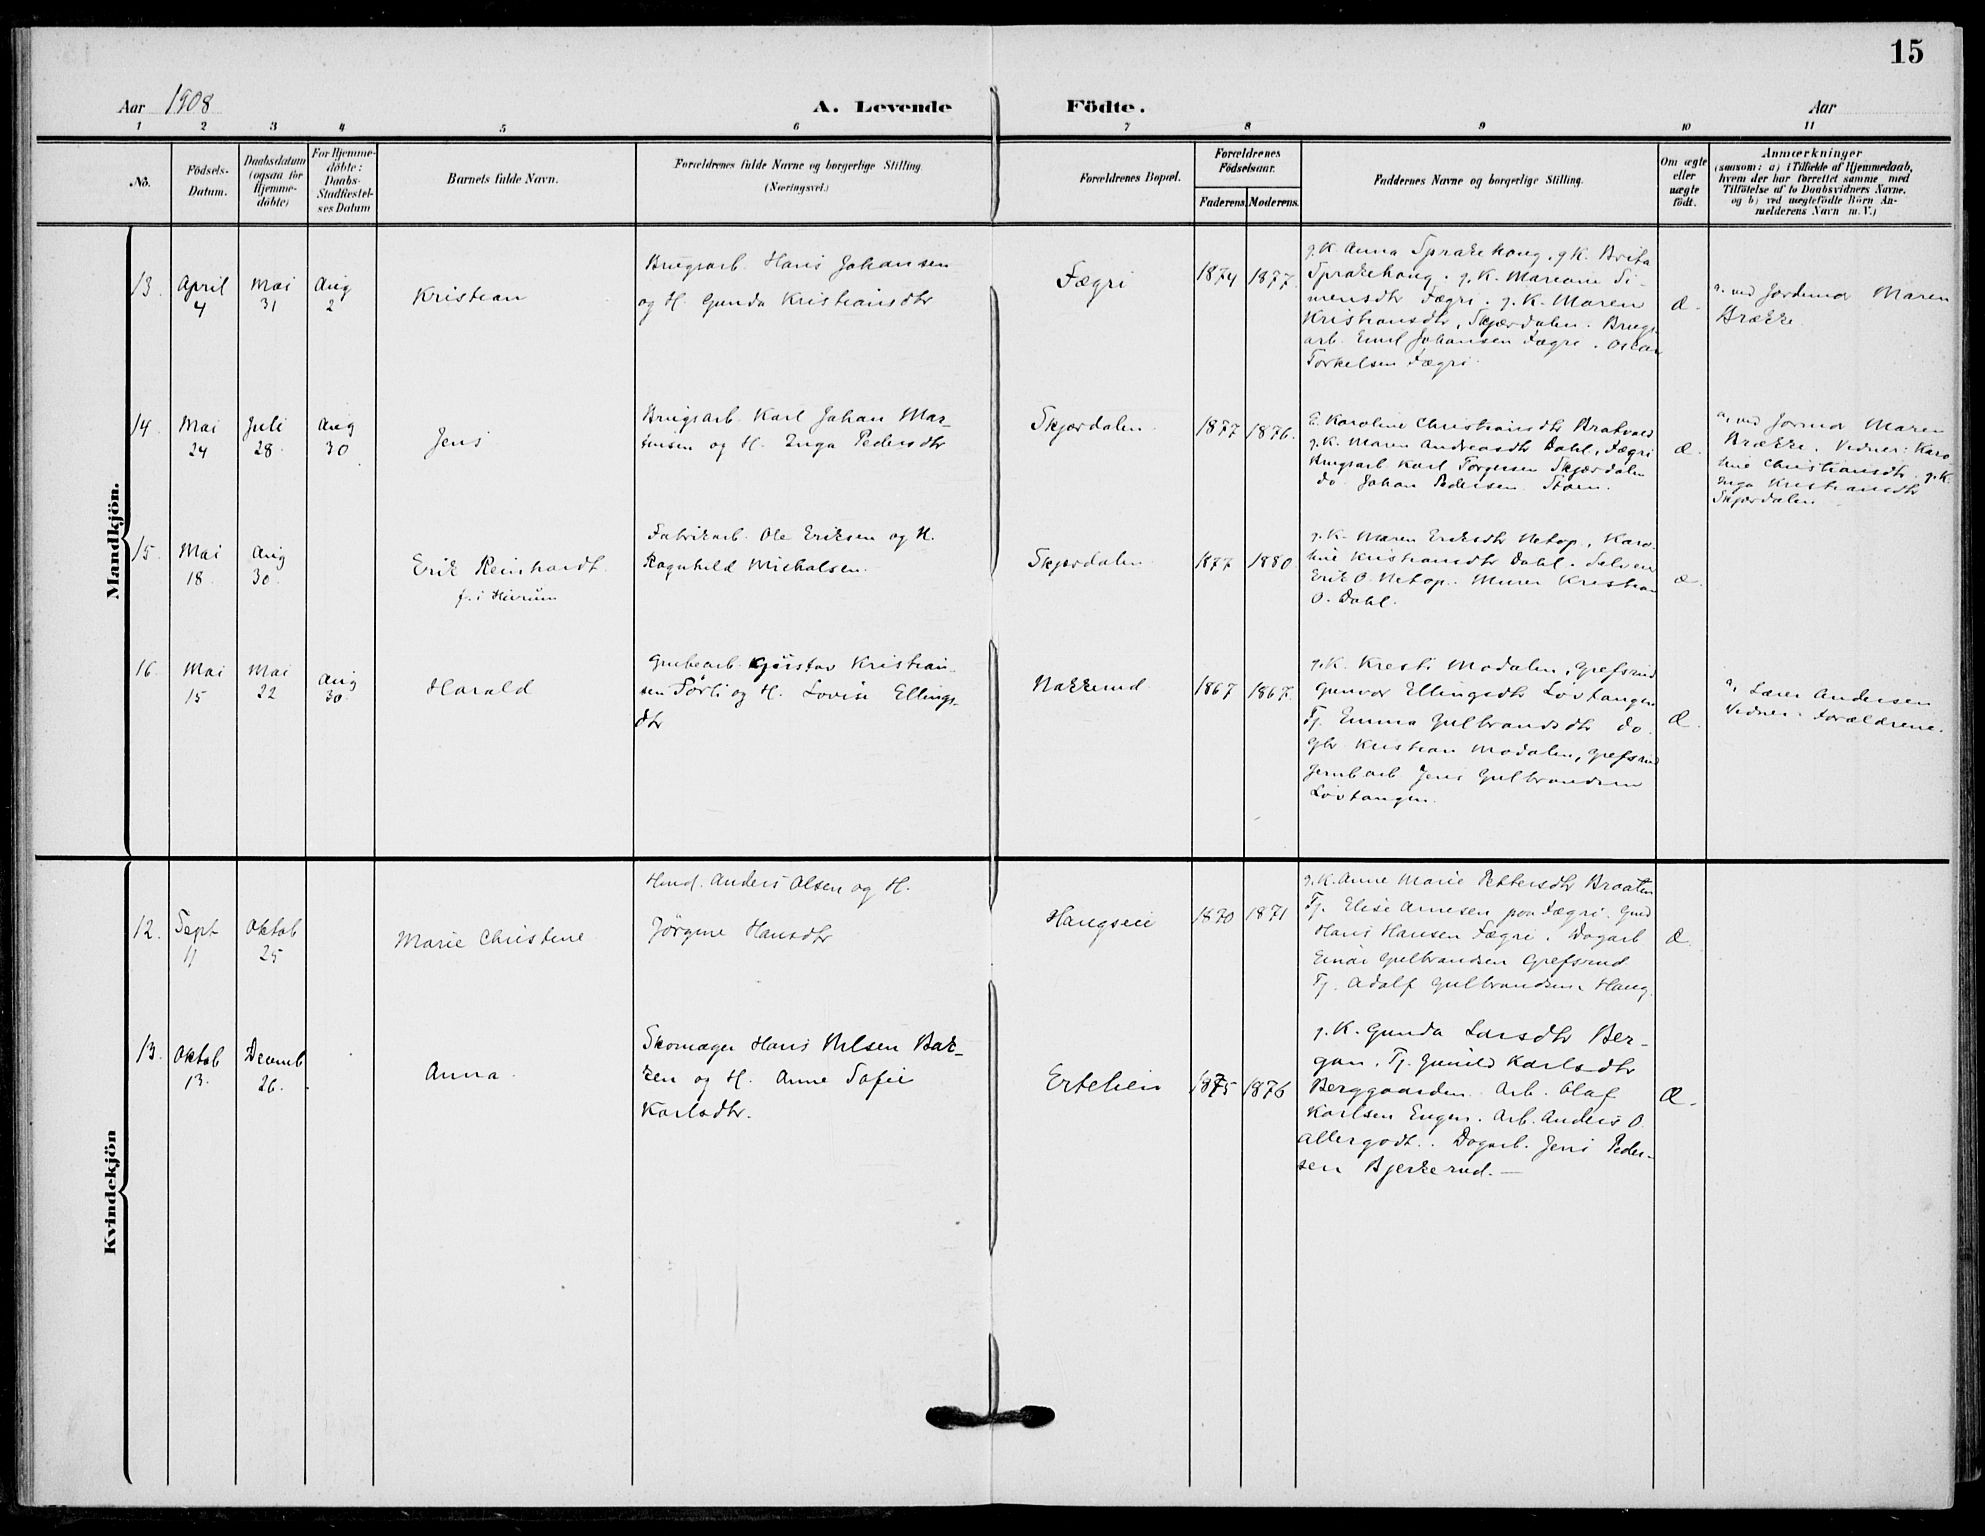 15
Aar 1908
A. Levende Födte.
Aar
1 2 3 4 5 6 7 8 9 10 11
No.
Födsels-
Datum.
Daabsdatum
(ogsaa for
Hjemme-
döbte)
For Hjemme-
döbte:
Daabs-
Stadfæstel-
ses Datum
Barnets fulde Navn.
Forældrenes fulde Navne og borgerlige Stilling.
(Næringsvei.)
Forældrenes Bopæl.
Forældrenes
Födselsaar.
Faderens.
Moderens.
Faddernes Navne og borgerlige Stilling.
Om ægte
eller
uægte
födt.
Anmærkninger
(saasom: a) i Tilfælde af Hjemmedaab,
hvem der har forrettet samme med
Tilföielse af to Daabsvidners Navne,
og b) ved uægtefödte Börn An-
melderens Navn m. V.)
Mandkjön.
13.
April
4
Mai
31
Aug
2
Kristian
Brugsarb. Hans Johansen
og H. Gunda Kristiansdtr
Fægri
1874
1877.
g.K. Anna Sprakehaug, g.K. Brita
Sprakehaug. g.K. Mariane Si-
mensdtr Fægri. g.K. Maren
Kristiansdtr, Skjærdalen. Brugs-
arb. Emil Johansen Fægri. Oscar
Torkelsen Fægri.
Æ.
a, ved Jordemor Maren
Brække.
14.
Mai
24
Juli
28.
Aug
30
Jens
Brugsarb. Karl Johan Mar-
tinsen og H. Inga Pedersdtr
Skjærdalen.
1877
1876.
E. Karoline Christiansdtr Bratvald
g.K. Maren Andreasdtr Dahl, Fægri
Brugsarb. Karl Torgersen Skjærdalen
do. Johan Pedersen Støen.
Æ.
a, ved Jormor Maren
Brække. Vidner: Karo-
line Christiansdtr. g.K.
Inga Kristiansdtr
Skjærdalen.
15.
Mai
18.
Aug
30.
Erik Reinhardt
f. i Hurum
Fabrikarb. Ole Eriksen og H.
Ragnhild Michalsen.
Skjærdalen.
1877
1880.
g.K. Maren Eriksdtr Netop, Karo-
line Kristiansdtr Dahl. Selveier
Erik O. Netop. Murer Kristian
O. Dahl.
Æ.
16.
Mai
15
Mai
22
Aug
30.
Harald
Grubearb. Gustav Kristian-
sen Førli og H. Lovise Ellings-
dtr
Nakkerud.
1867
1867.
g.K. Kresti Modalen, Grefsrud
Gunvor Ellingsdtr Løvtangen
Tj. Emma Gulbrandsdtr do.
Gbr. Kristian Modalen, Grefsrud
Jernbarb. Jens Gulbrandsen
Løvtangen.
Æ.
a, Lærer Andersen
Vidner: Forældrene.
Kvindekjön
12.
Sept
11
Oktob
25
Marie Christine
Hmd. Anders Olsen og H.
Jørgine Hansdtr
Haugseie
1870
1871
g.K. Anne Marie Pettersdtr Braaten
Tj. Elise Arnesen paa Fægri. Gmd
Hans Hansen Fægri. Dagarb
Einar Gulbrandsen Grefsrud
Tj. Adolf Gulbrandsen, Haug.
Æ.
13.
Oktob
13.
Decemb
26.
Anna.
Skomager Hans Nilsen Bak-
ken og H. Anne Sofie
Karlsdtr.
Ertelien
1875
1876
g.K. Gunda Larsdtr Ber-
gan, Tj. Gunild Karlsdtr
Berggaarden. Arb. Olaf
Karlsen Engen. Arb. Anders O.
Allergodt. Dagarb. Jens Peder-
sen Bjerkerud.—
Æ.